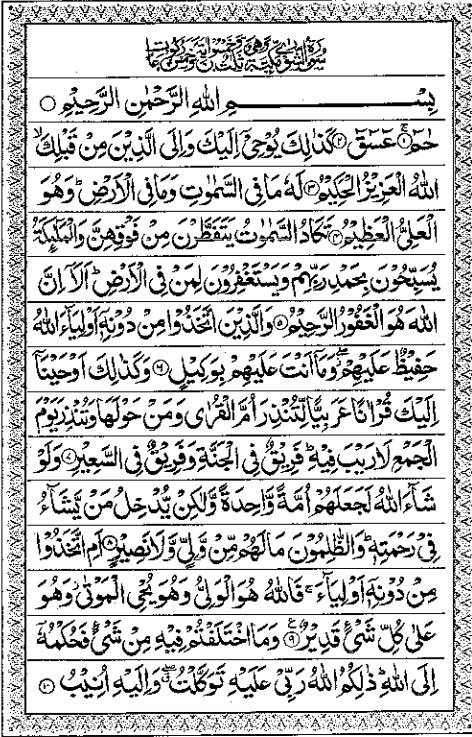 سُوْرَةُ الشُّوْرٰى مَكِّيَّةٌ وَّهِيَ ثَلٰثٌ وَّخَمْسُوْنَ اٰيَةً وَّخَمْسُ رُكُوْعَاتٍ
بِسْــــــــــمِ اللهِ الرَّحْمٰنِ الرَّحِيْمِ ○
حٰمٓ ۚ﴿۱﴾ عٓسٓقٓ ﴿۲﴾ كَذٰلِكَ يُوْحِيْۤ اِلَيْكَ وَاِلَى الَّذِيْنَ مِنْ قَبْلِكَ ۙ
اللهُ الْعَزِيْزُ الْحَكِيْمُ ﴿۳﴾ لَهٗ مَا فِي السَّمٰوٰتِ وَمَا فِي الْاَرْضِ ؕ وَهُوَ
الْعَلِيُّ الْعَظِيْمُ ﴿۴﴾ تَكَادُ السَّمٰوٰتُ يَتَفَطَّرْنَ مِنْ فَوْقِهِنَّ وَالْمَلٰٓئِكَةُ
يُسَبِّحُوْنَ بِحَمْدِ رَبِّهِمْ وَيَسْتَغْفِرُوْنَ لِمَنْ فِي الْاَرْضِ ؕ اَلَاۤ اِنَّ
اللهَ هُوَ الْغَفُوْرُ الرَّحِيْمُ ﴿۵﴾ وَالَّذِيْنَ اتَّخَذُوْا مِنْ دُوْنِهٖۤ اَوْلِيَآءَ اللهُ
حَفِيْظٌ عَلَيْهِمْ ۖ وَمَاۤ اَنْتَ عَلَيْهِمْ بِوَكِيْلٍ ﴿۶﴾ وَكَذٰلِكَ اَوْحَيْنَاۤ
اِلَيْكَ قُرْاٰنًا عَرَبِيًّا لِّتُنْذِرَ اُمَّ الْقُرٰى وَمَنْ حَوْلَهَا وَتُنْذِرَ يَوْمَ
الْجَمْعِ لَا رَيْبَ فِيْهِ ؕ فَرِيْقٌ فِي الْجَنَّةِ وَفَرِيْقٌ فِي السَّعِيْرِ ﴿۷﴾ وَلَوْ
شَآءَ اللهُ لَجَعَلَهُمْ اُمَّةً وَّاحِدَةً وَّلٰكِنْ يُّدْخِلُ مَنْ يَّشَآءُ
فِيْ رَحْمَتِهٖ ؕ وَالظّٰلِمُوْنَ مَا لَهُمْ مِّنْ وَّلِيٍّ وَّلَا نَصِيْرٍ ﴿۸﴾ اَمِ اتَّخَذُوْا
مِنْ دُوْنِهٖۤ اَوْلِيَآءَ ۚ فَاللهُ هُوَ الْوَلِيُّ وَهُوَ يُحْيِ الْمَوْتٰى ؗ وَهُوَ
عَلٰى كُلِّ شَيْءٍ قَدِيْرٌ ﴿۹﴾ وَمَا اخْتَلَفْتُمْ فِيْهِ مِنْ شَيْءٍ فَحُكْمُهٗۤ
اِلَى اللهِ ؕ ذٰلِكُمُ اللهُ رَبِّيْ عَلَيْهِ تَوَكَّلْتُ ۖ وَاِلَيْهِ اُنِيْبُ ﴿۱۰﴾